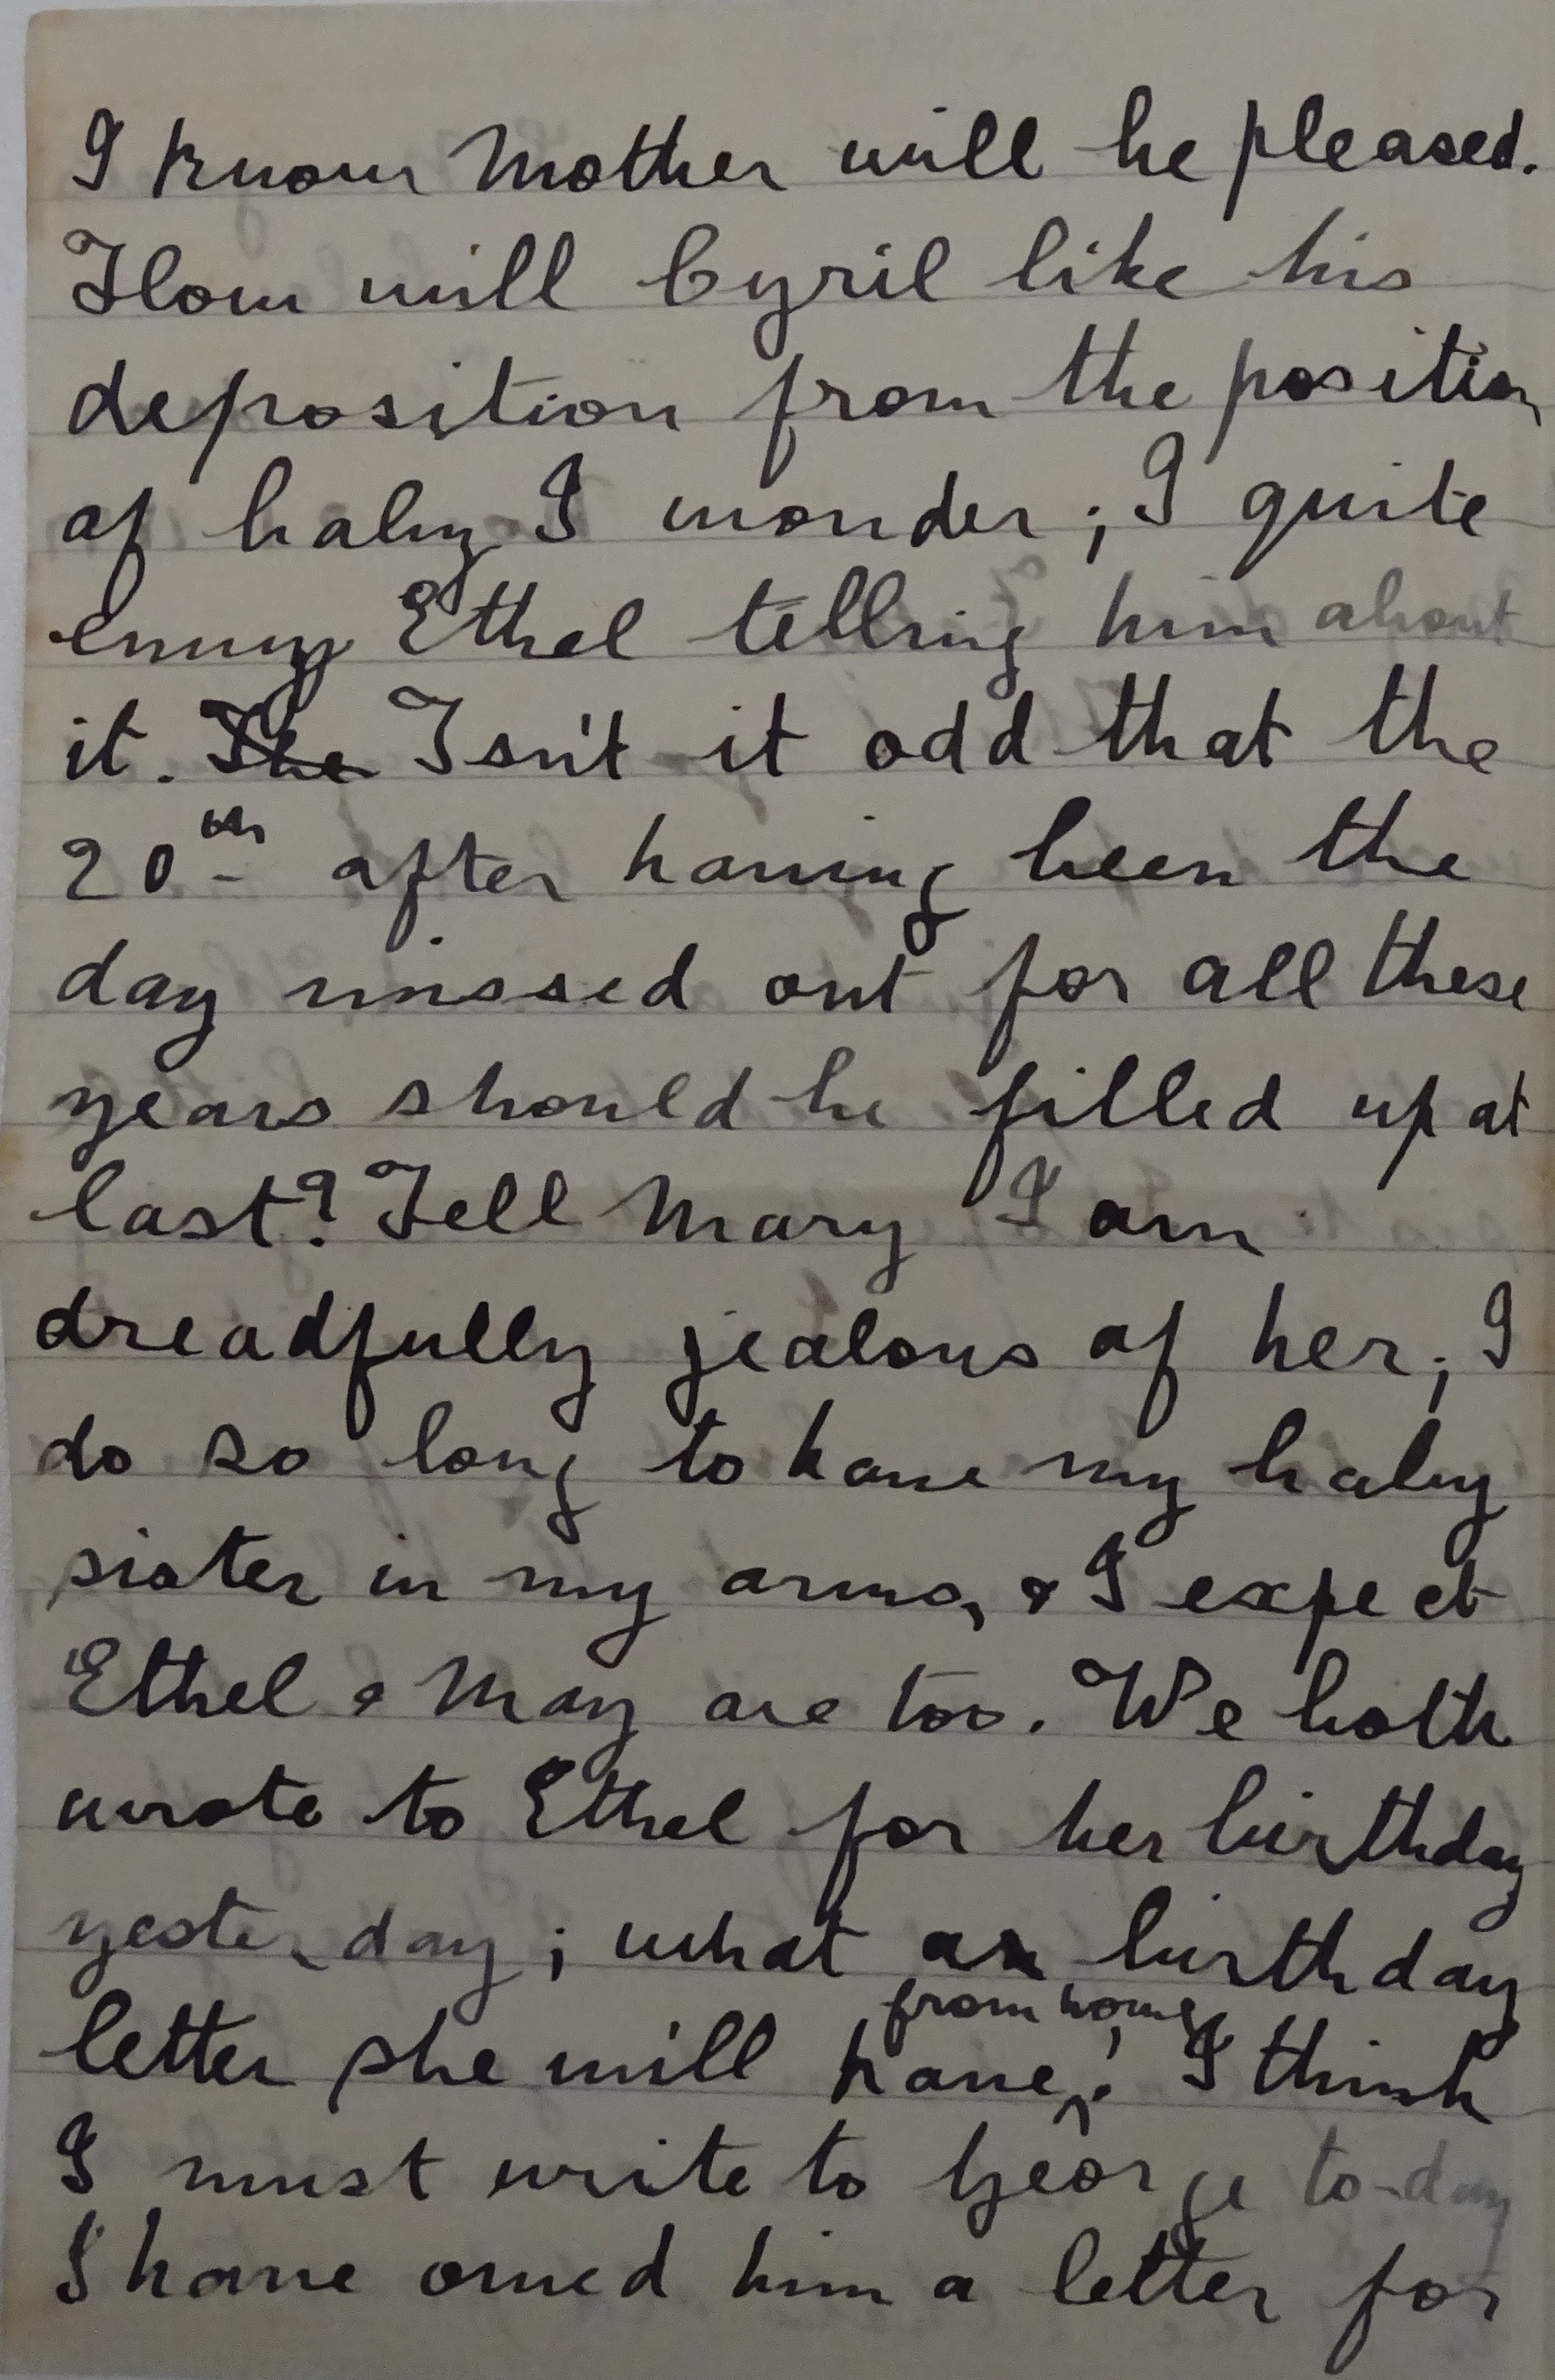 I know Mother will be pleased.
How will Cyril like his
deposition from the position
of baby I wonder; I quite
envy Ethel telling him about
it. She Isn't it odd that the
20th after having been the
day missed out for all these
years should be filled up at
last? Tell Mary I am
dreadfully jealous of her; I
do so long to have my baby
sister in my arms, & I expect
Ethel & May are too. We both
wrote to Ethel for her birthday
yesterday; what a birthday
letter she will have from home! I think
I must write to George to-day
I have owed him a letter for